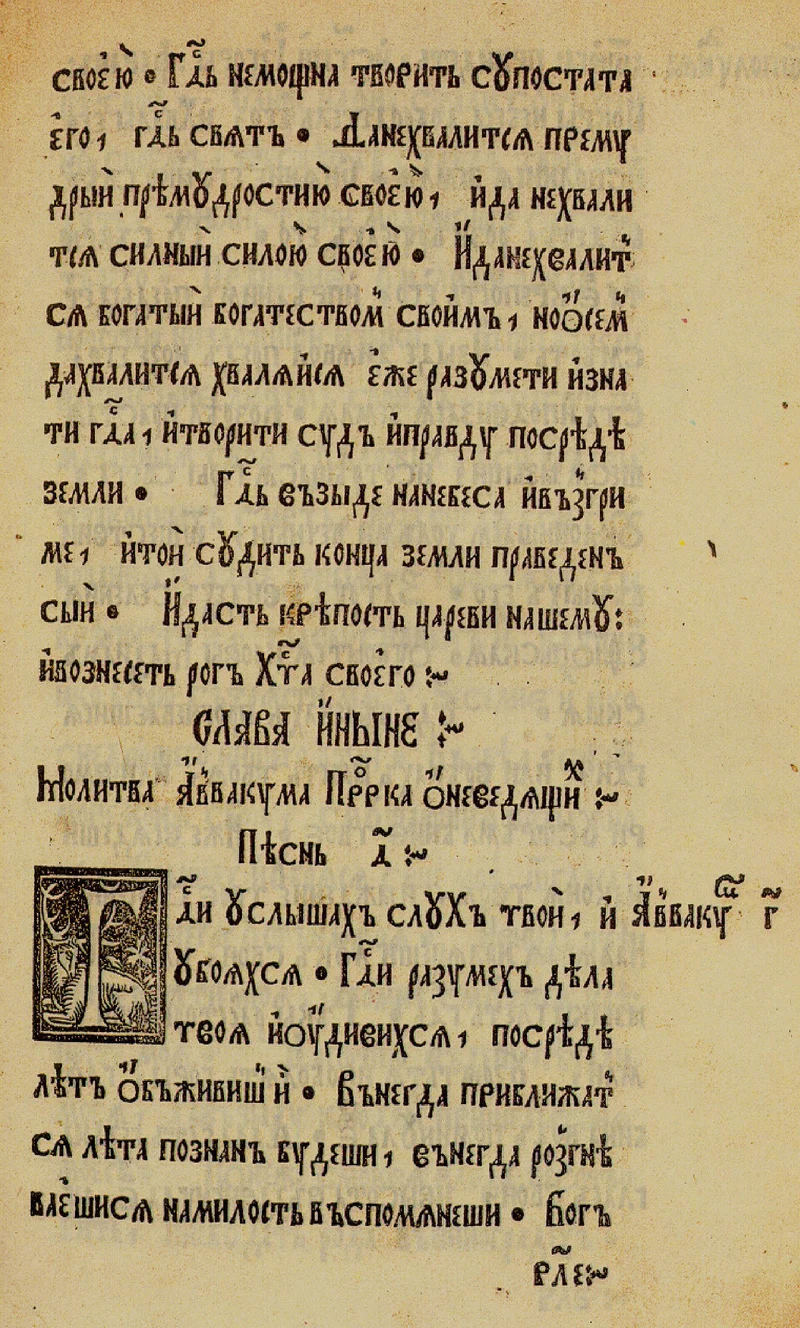 своєю • Гд҃ь немощна творить сꙋпостата
єго, гд҃ь свѧтъ • Данехвалитсѧ прему
дрый прѣмꙋдростию своєю, ида нехвали
тсѧ силный силою своєю • Иданехвалит
сѧ богатый богатеством своимъ, нооѡсем
дахвалитсѧ хвалѧисѧ єже разꙋмети изна
ти гд҃а, итворити судъ иправду посрѣдѣ
земли • Гд҃ь възыде нанебеса ивъзгри
ме, итой сꙋдить конца земли праведенъ
сый • Идасть крѣпость цареви нашемꙋ:
ивознесеть рогъ Хт҃а своєго :~
СЛАВА ИНЫНЕ :~
Молитва Аввакума Пр҃рка онееедѧщих :~
Пѣснь д҃ :~
Гд҃и ꙋслышахъ слꙋхъ твой, и
ꙋбоѧхсѧ • Гд҃и разумехъ дѣла
твоѧ иоудивихсѧ, посрѣдѣ
лѣтъ обьживиши • Вънегда приближат
сѧ лѣта познанъ будеши, вънегда розгнѣ
ваєшисѧ намилость въспомѧнеши • Богъ
Авваку г҃
рл҃є :~